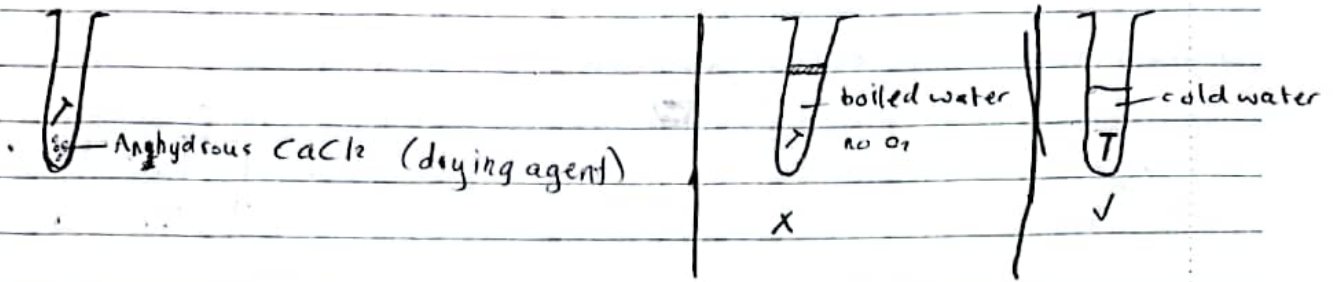 Anghydrous CaCl2 (drying agent)
boiled water
no O2
X
cold water
✓